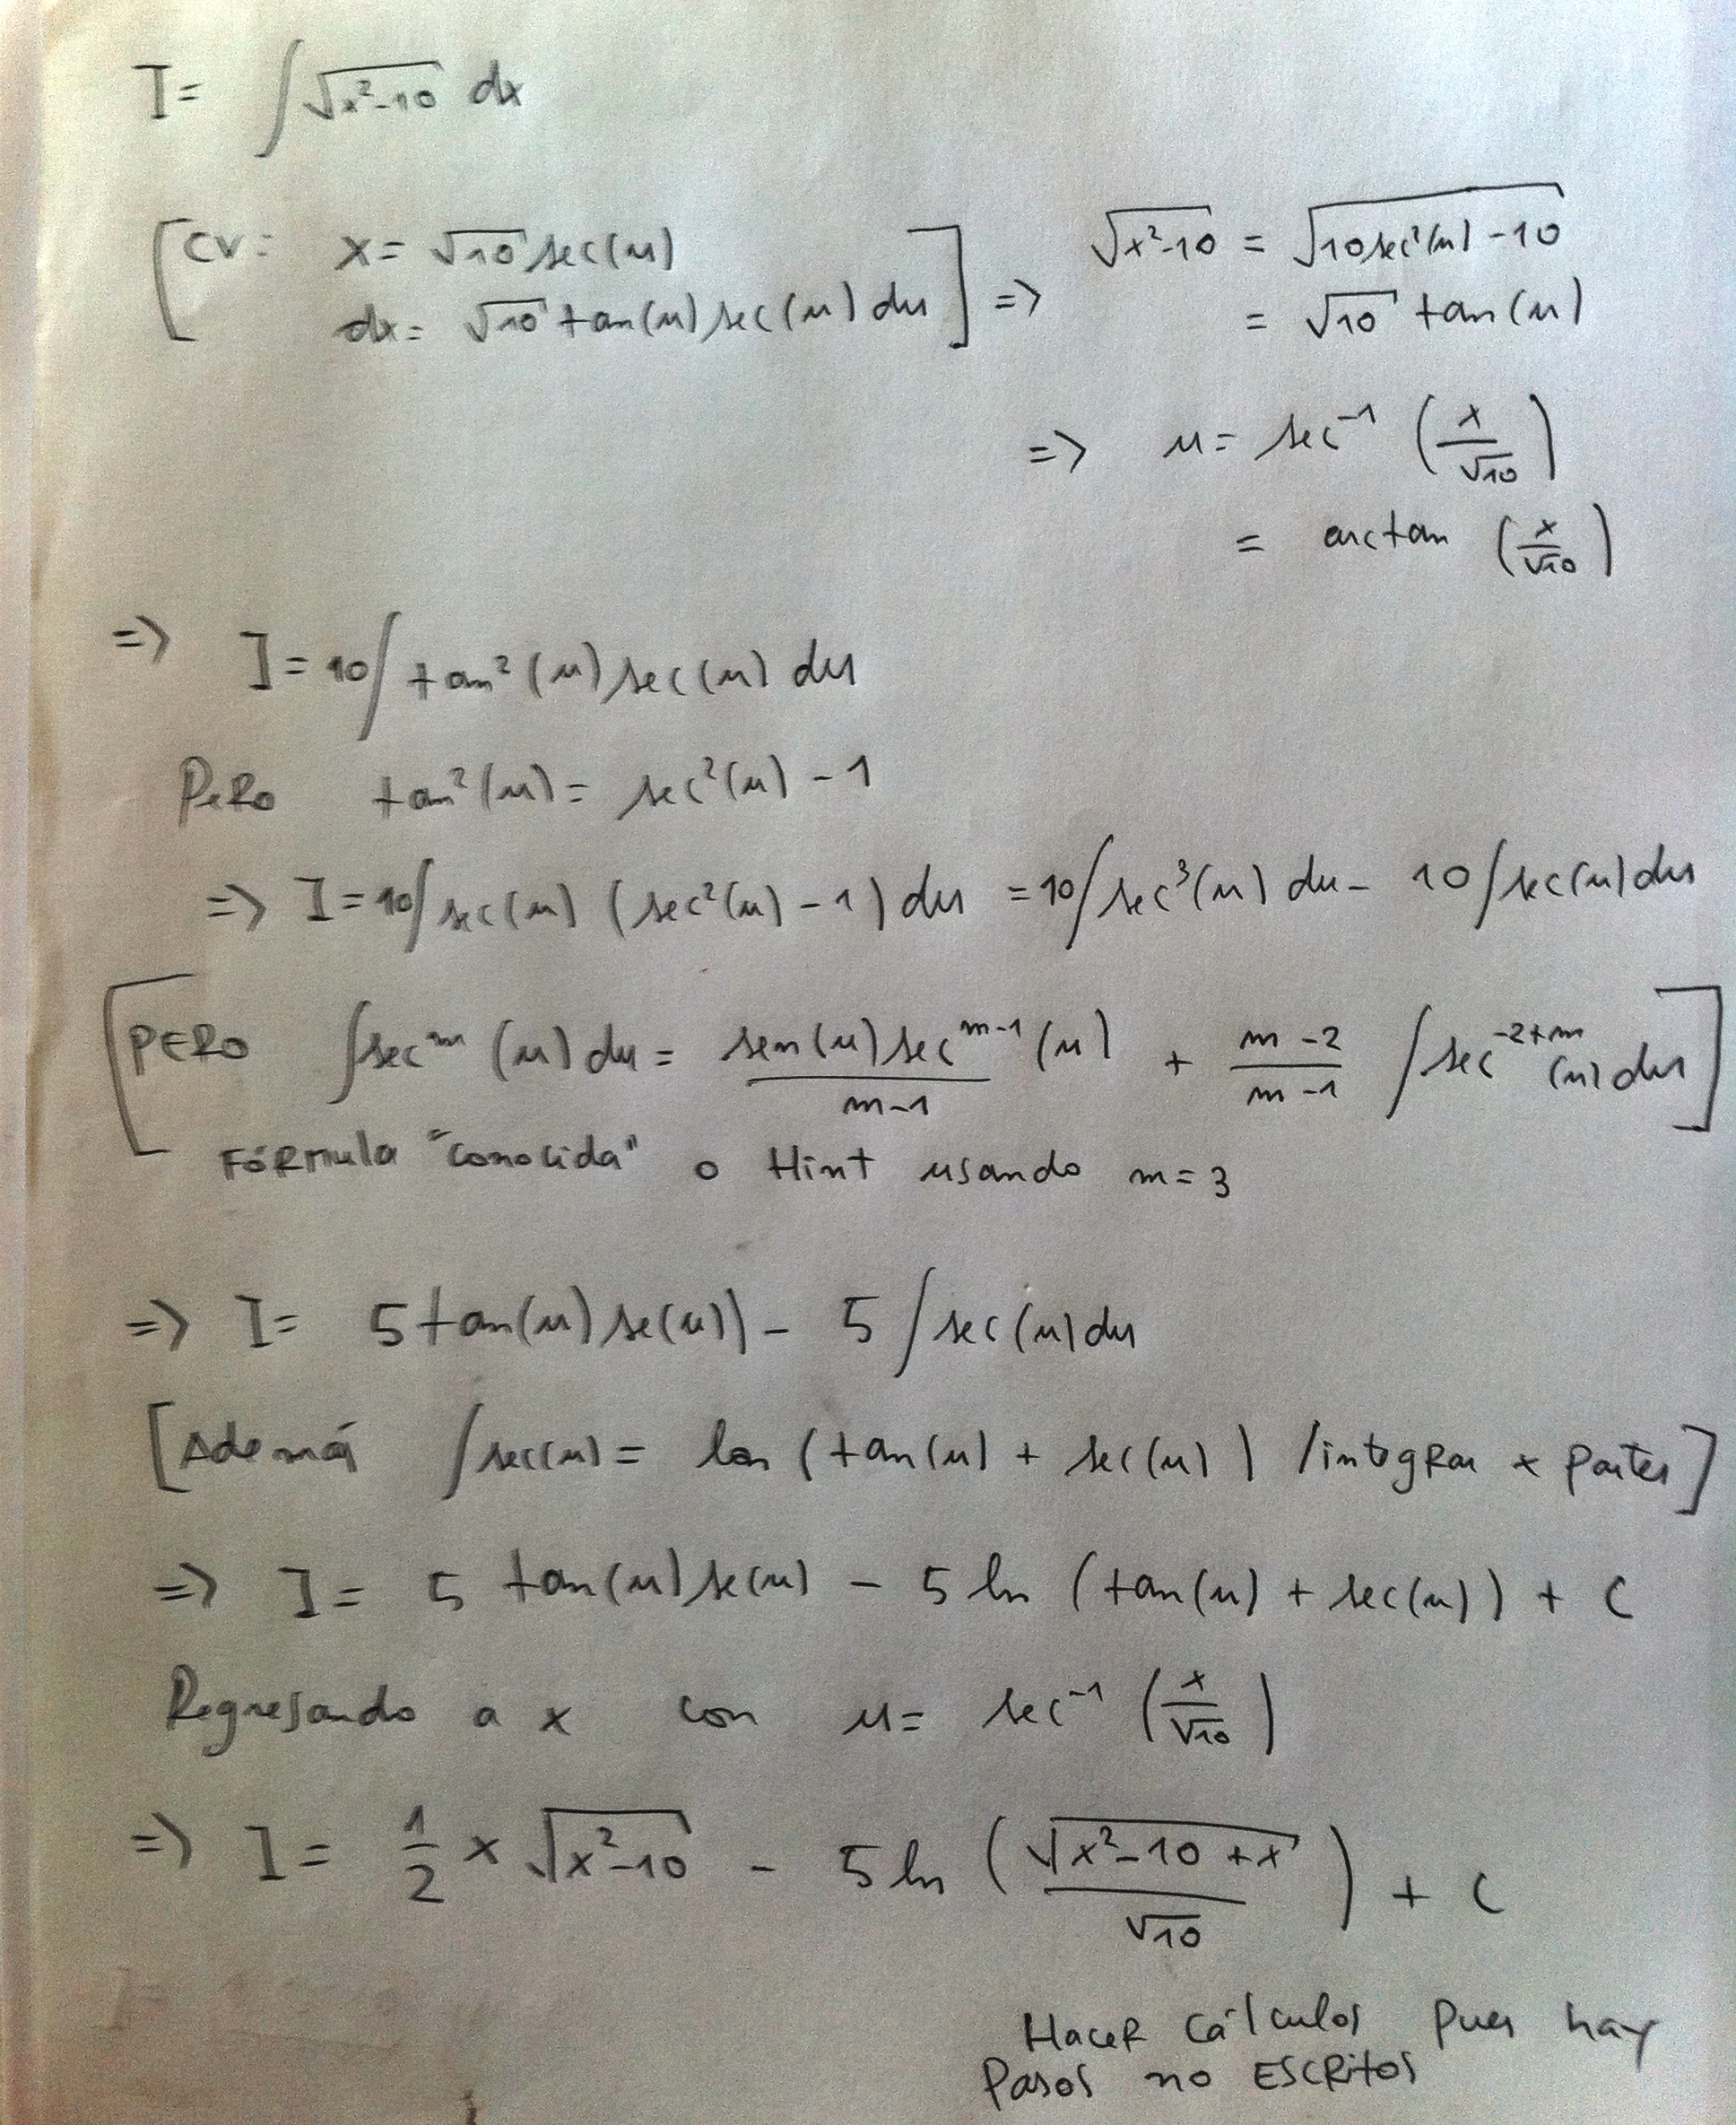 I = ∫√(x²-10) dx
[CV: x = √10 sec(u)
dx = √10 tan(u) sec(u) du] => √(x²-10) = √(10sec²(u) - 10)
= √10 tan(u)
=> u = sec⁻¹ (x/√10)
= arctan (x/√10)
=> I = 10∫tan²(u) sec(u) du
Pero tan²(u) = sec²(u) - 1
=> I = 10∫sec(u) (sec²(u) - 1) du = 10∫sec³(u) du - 10∫sec(u) du
[PERO ∫secᵐ(u) du = sen(u) secᵐ⁻¹(u)/(m-1) + (m-2)/(m-1) ∫sec⁻²⁺ᵐ(u) du]
FÓRmula "conocida" o Hint usando m = 3
=> I = 5 tan(u) se(u)) - 5∫sec(u) du
[Ademá ∫sec(u) = ln (tan(u) + sec(u)) /integRar x partes]
=> I = 5 tan(u) se(u) - 5 ln (tan(u) + sec(u)) + C
Regresando a x con u = sec⁻¹ (x/√10)
=> I = 1/2 x √(x²-10) - 5 ln (√(x²-10+x)/√10) + C
HaceR cálculos pues hay
Pasos no ESCRitos